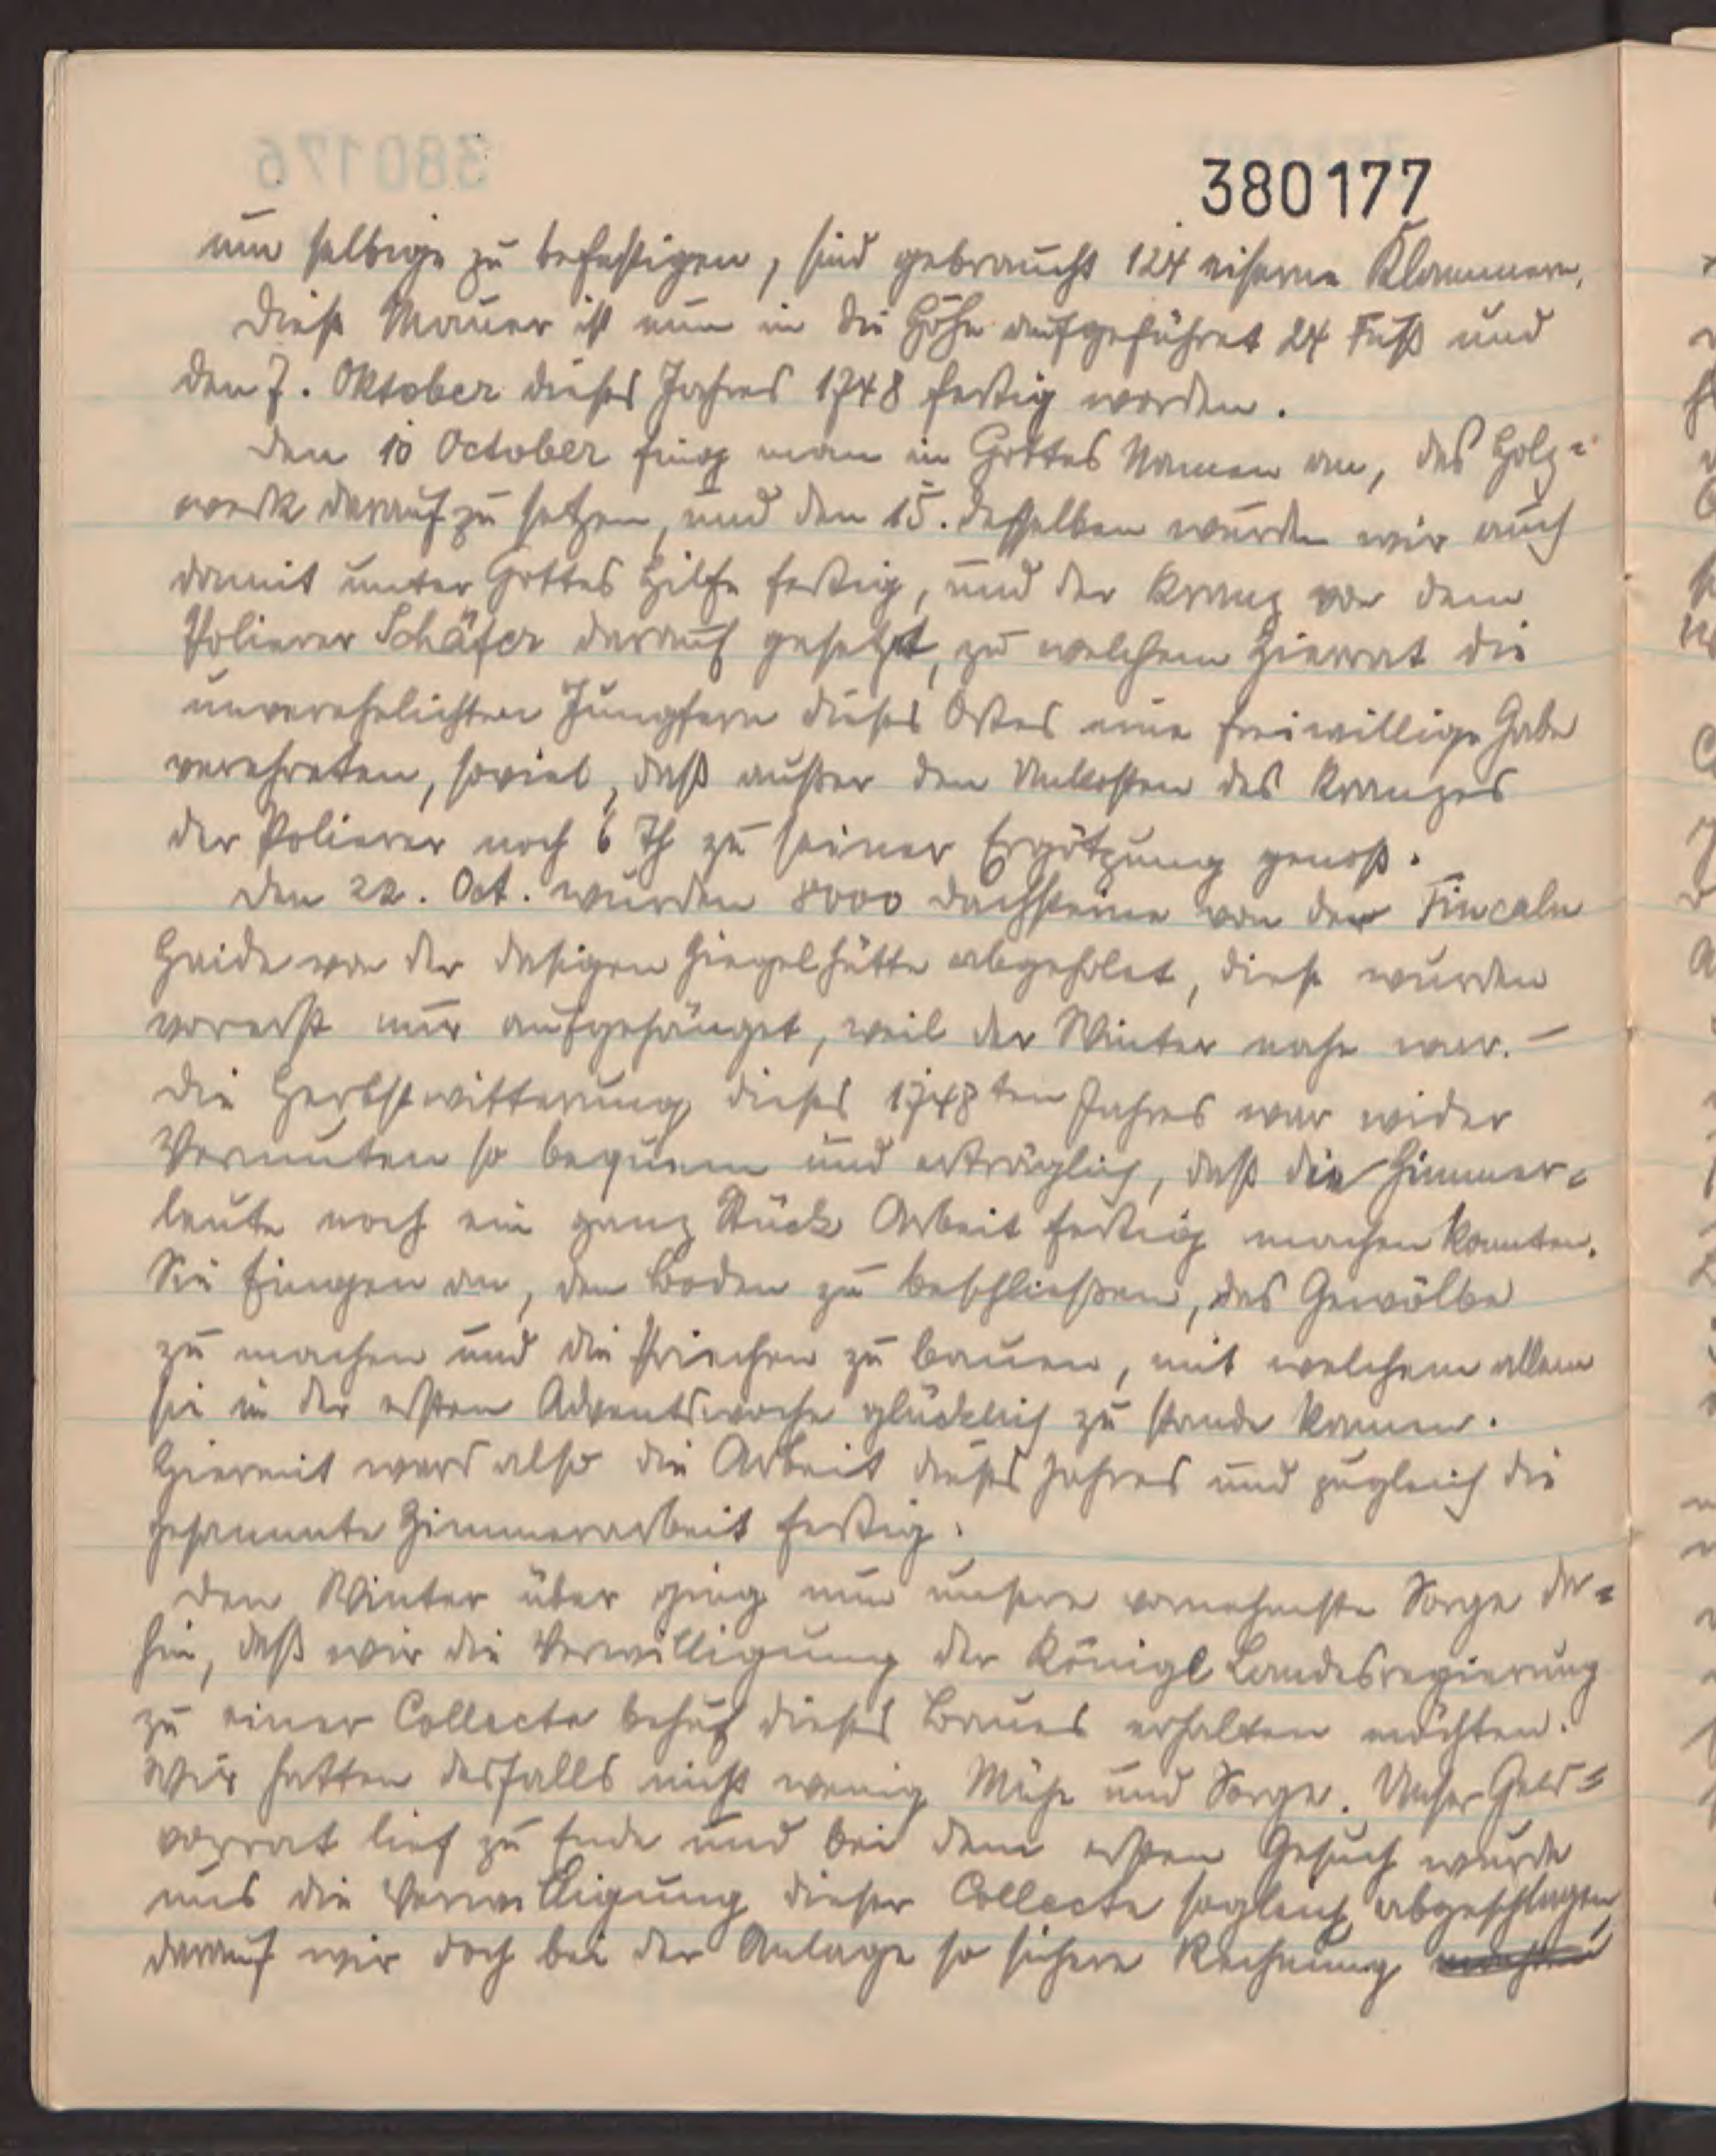 380176
380177
um selbige zu befestigen, sind gebraucht 124 eiserne Klammern.
Diese Mauer ist nun in die Höhe aufgeführet 24 Fuß und
den 7. Oktober dieses Jahres 1748 fertig worden.
Den 10 October fing man in Gottes Namen an, das Holz=
werk darauf zu setzen, und den 15. desselben wurden wir auch
damit unter Gottes Hilfe fertig, und der Kranz von dem
Polierer Schäfer darauf gesetzt, zu welchem Zierrat die
unverehelichten Jungfern dieses Ortes eine freiwillige Gabe
verehreten, soviel, daß außer den Unkosten des Kranzes
der Polierer noch 6 Th zu seiner Ergötzung genoß.
Den 22. Oct. wurden 8000 Dachsteine von der Fincaln
Haide von der dasigen Ziegelhütte abgeholet, diese wurden
vorerst nur aufgehänget, weil der Winter nahe war. –
Die Herbstwitterung dieses 1748ten Jahres war wider
Vermuten so bequem und erträglich, daß die Zimmer=
leute noch ein ganz Stück Arbeit fertig machen konnten.
Sie fingen an, den Boden zu beschließen, das Gewölbe
zu machen und die Priechen zu bauen, mit welchem allem
sie in der ersten Adventswoche glücklich zu stande kamen.
Hiermit ward also die Arbeit dieses Jahres und zugleich die
gesammte Zimmerarbeit fertig.
Den Winter über ging nun unsere vornehmste Sorge da=
hin, daß wir die Verwilligung der Königl Landesregierung
zu einer Collecte behuf dieses Baues erhalten möchten.
Wir hatten desfalls nicht wenig Mühe und Sorge. Unser Geld=
vorrat lief zu Ende und bei dem ersten Gesuch wurde
uns die Verwilligung dieser Collecte sogleich abgeschlagen,
darauf wir doch bei der Anlage so sichere Rechnung machten